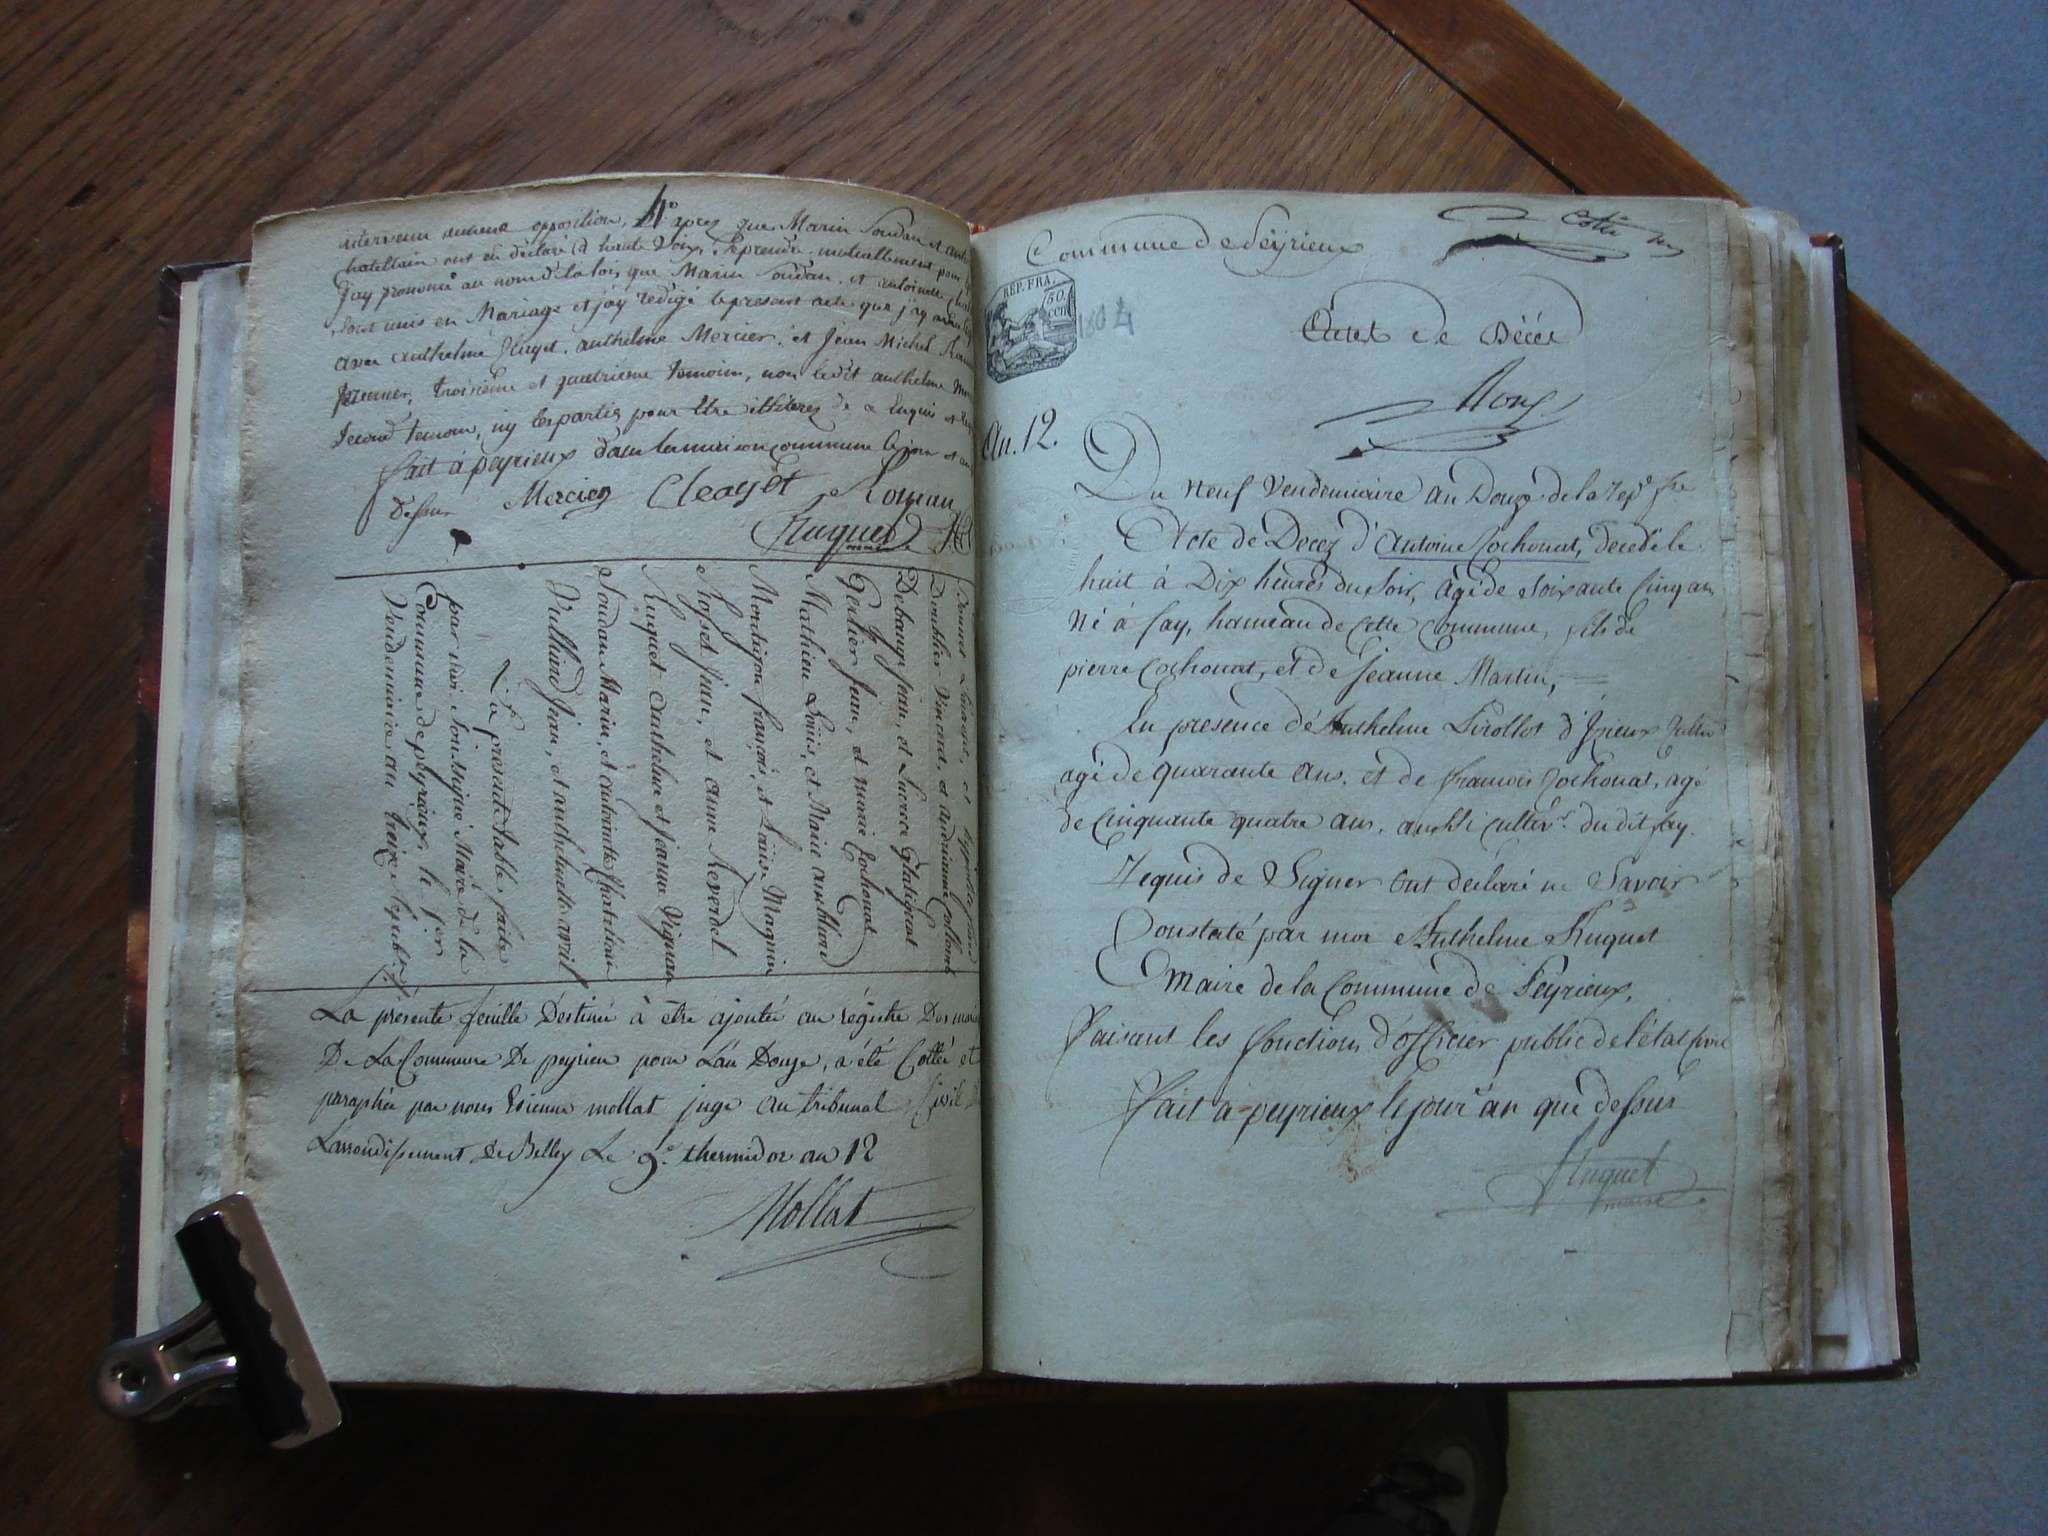 intervenu aucune opposition, après que Marin Soudan et
chatellain ont eu déclaré à haute voix, se prendre mutuellement pour
j'ay prononcé au nom de la loi, que Marin Soudan, et antoinette
sont unis en Mariage et j'ay redigé le present acte que j'ay
avec anthelme Huget, anthelme Mercier, et Jean Michel
premier, troisième et quatrieme temoin, non ledit anthelme
second temoin, ny les parties pour etre illiterez de ce enquis et
fait à peyrieux dans la maison commune le jour et an
dessus Mercier Cleayet Roman
Huguet maire
Bonnet
Doublier Vincent, et andrianne
Debauge Jean, et Lucrece Chaligcat
Gerlier Jean, et marie Cochonat
Mathieu Louis, et Marie
Mordaigou françois, et Louise Magnin
Royset Jean, et anne Reverdel
Huguet anthelme et Jeanne Vignon
Soudan Marin, et antoinette Chatelain
Vulliard Jean, et anthelmette avril
La présente table faite
par moi soussigné Maire de la
Commune de peyrieux, le 1er
Vendemiaire an treize
La presente feuille Déstinée à être ajoutée au régistre Des
De La Commune De peyrieu pour L'an Douze, a été Cottée et
paraphée par nous Etienne mollat juge au tribunal Civil
L'arrondissement de Belley Le 9e thermidor an 12
Mollat
Commune de Peyrieux
Cotté
REP. FRA.
50. cen
1804
Actes de Décès
An. 12.
Du neuf Vendemiaire an Douze de la rep.e fse
Acte de Decez d'Antoine Cochonat, decedé le
huit à Dix heures du soir, agé de soixante Cinq ans
Né à fay, hameau de Cette Commune, fils de
pierre Cochonat, et de Jeanne Martin,
En presence de Anthelme Pirollot d'Izieux
agé de quarante ans, et de francois Cochonat, agé
de Cinquante quatre ans, aussi cultevr. du dit fay.
Requis de Signer ont déclaré ne Savoir
Constaté par moi Anthelme Huguet
Maire de la Commune de Peyrieux,
faisant les fonctions d'officier public de l'état Civil
Fait à peyrieux le jour an que dessus
Huguet
maire